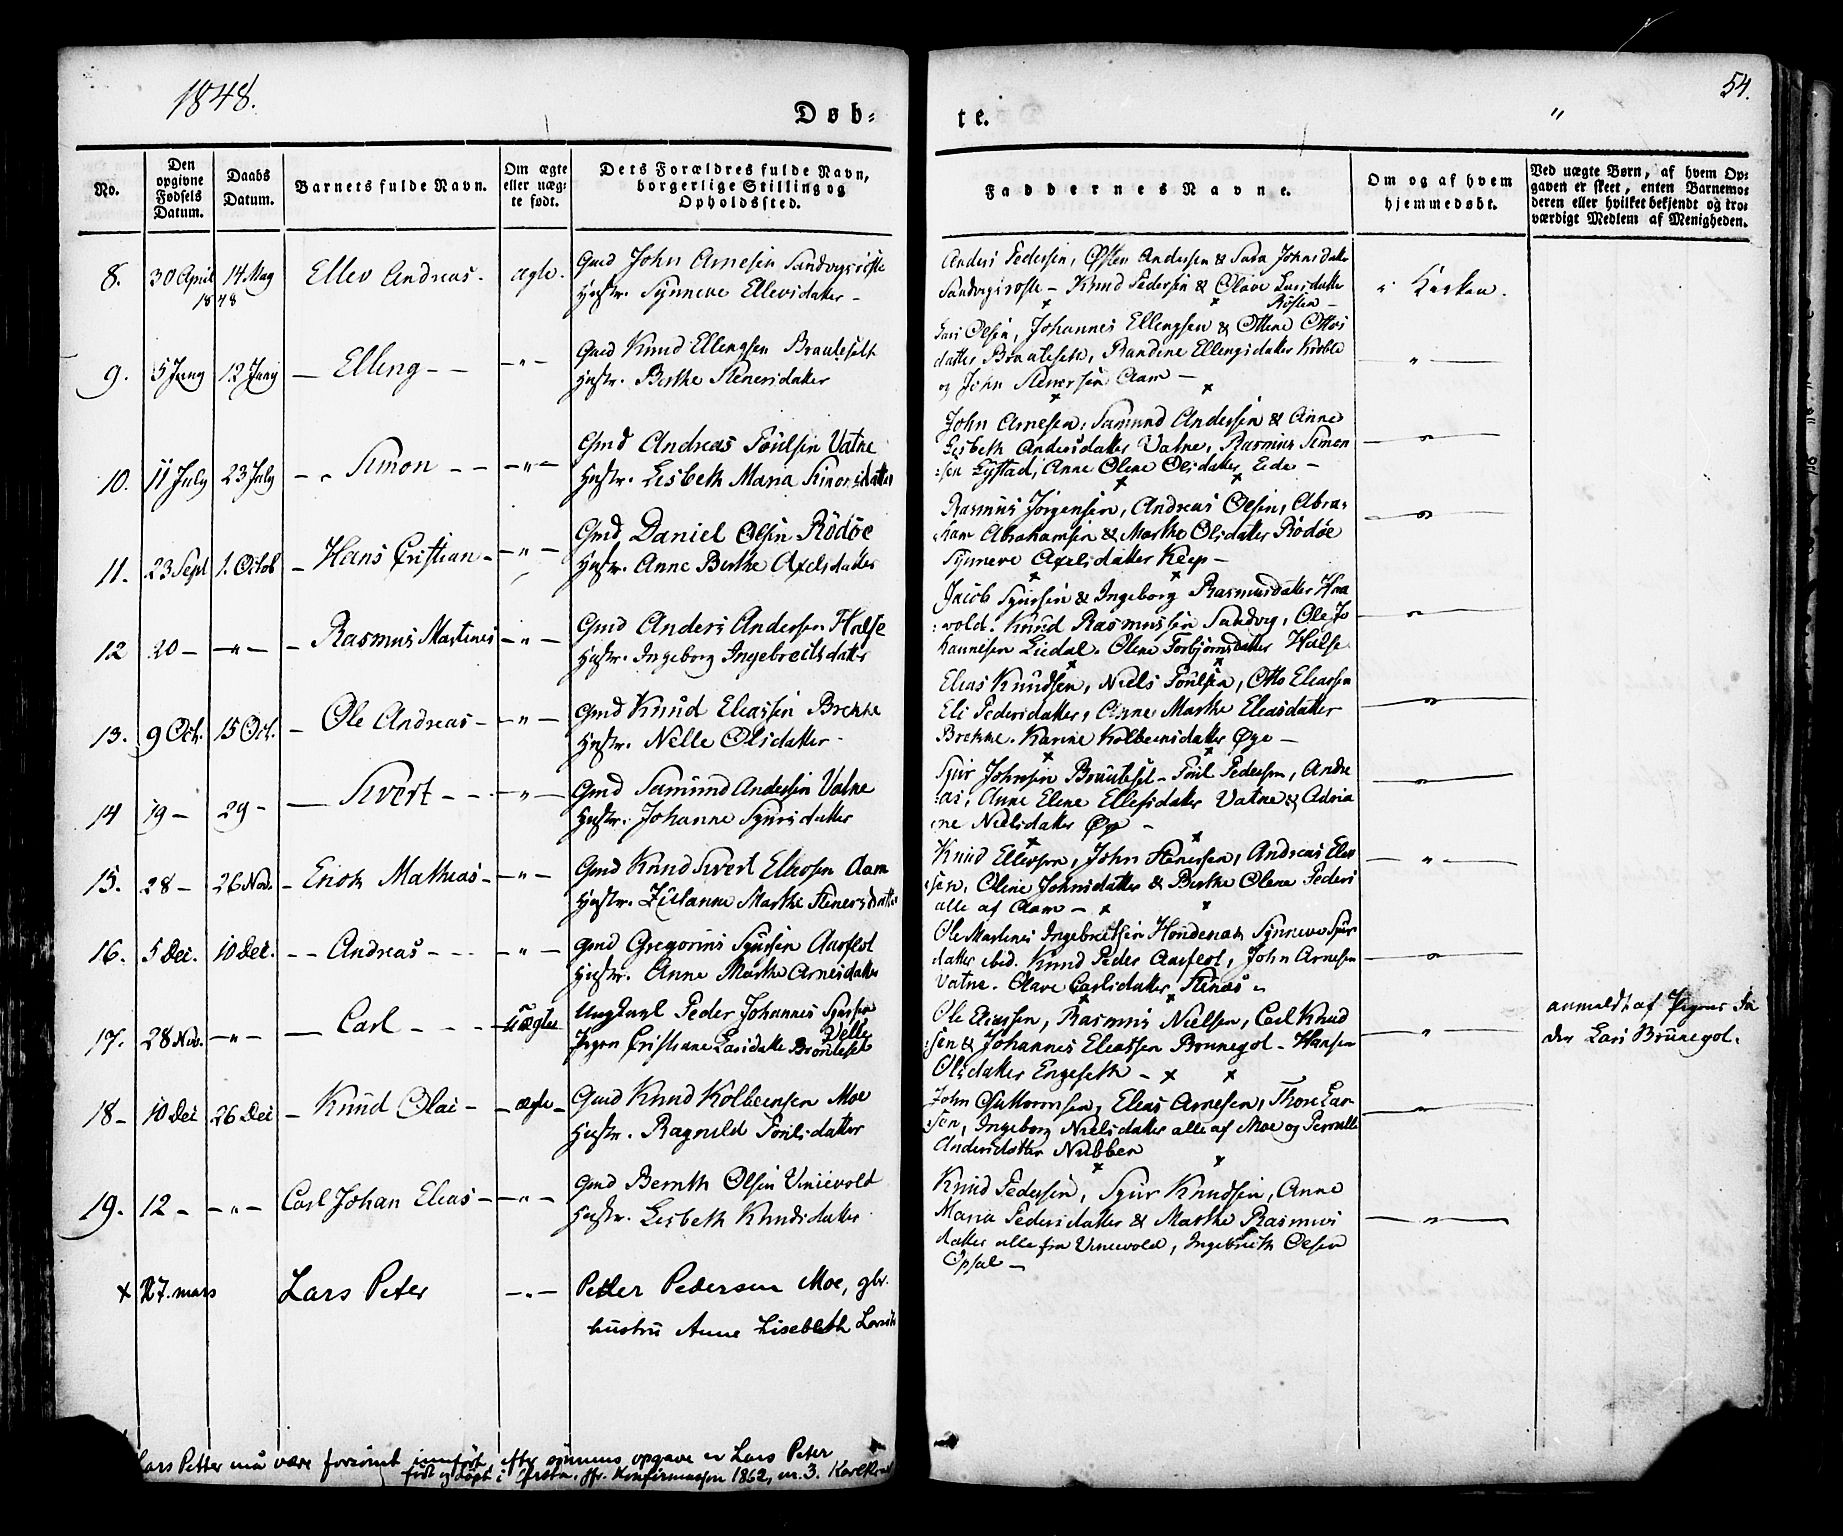 1848.
Døb-
te.
54.
No.
Den opgivne Fødsels Datum.
Daabs Datum.
Barnets fulde Navn.
Om ægte eller uægte født.
Dets Forældres fulde Navn, borgerlige Stilling og Opholdssted.
Faddernes Navne.
Om og af hvem hjemmedøbt.
Ved uægte Børn, af hvem Opgaven er skeet, enten Barnemoderen eller hvilket bekjendt og troværdigt Medlem af Menigheden.
8. 30 April 1848 14. May Ellev Andreas - ægte. Gmd John Arnesen Sandvigsroste
Hustr. Synneve Ellevsdatter -
Anders Pedersen, Østen Andersen & Sara Johnsdatter
Sandvigsroste - Knud Pedersen & Olave Larsdatter
Røsten -
i Kirken.
9. 5 Juny 12 Juny - Elling - - - " - Gmd Knud Ellingsen Brautesett
Hustr. Berthe Stenersdatter
Lars Olsen, Johannes Ellingsen & Oline Ottos
datter Brautesett, Randine Ellingsdatter
og John Stenersen Aam -
- " -
10. 11 July 23 July - - Simon - - - " - Gmd Andreas Poulsen Vatne
Hustr. Lisbeth Maria Simonsdatter
John Arnesen, Samund Andersen & Anne
Lisbeth Andersdatter Vatne, Rasmus Simon
sen Systad, Anne Oline Olsdatter Eide -
- " -
11. 23 Sept 1. Octob - Hans Cristian - - " - Gmd Daniel Olsen Rödöe
Hustr. Anne Berthe Axelsdatter
Rasmus Jörgensen, Andreas Olsen, Abra-
ham Abrahamsen & Marthe Olsdatter Rödöe
Synneve Axelsdatter Keep -
- " -
12 20 - - " - - Rasmus Martinus - " - Gmd Anders Andersen Halse
Hustr. Ingeborg Ingebreitsdatter
Jacob Sjursen & Ingeborg Rasmusdatter Haa
vold. Knud Rasmussen Sandvig, Ole Jo
hannesen Liedal. Oline Torbjörnsdatter Halse.
- " -
13. 9 Oct. 15 Oct. - Ole Andreas - - " - Gmd Knud Eliassen Brekke
Hustr. Nelle Olsdatter -
Elias Knudsen, Niels Poulsen, Otto Eliassen
Eli Pedersdatter, Anne Marthe Eliasdatter
Brekke. Karine Kolbeinsdatter Øye -
- " -
14 19 - 29 - - Sivert - - - - " - Gmd Samund Andersen Vatne
Hustr. Johanne Sjursdatter
Sjur Johnsen Brauteset - Poul Pedersen, Andre
as, Anne Elene Ellefsdatter Vatne & Adria
ne Nielsdatter Øye -
- " -
15. 28 - 26 Nov. - Enok Mathias - - " - Gmd Knud Sivert Ellevsen Aam
Hustr. Zidanne Marthe Stenersdatter
Knud Ellevsen, John Stenersen, Andreas Ellev
sen, Oline Johnsdatter & Berthe Olene Peders
alle af Aam -
- " -
16. 5 Dec. 10 Dec. - - Andreas - - - - " - Gmd Gregorius Sjursen Aarflot
Hustr. Anne Marthe Arnesdatter
Ole Martinus Ingebreitsen Hondenak Synneve Sjur
datter ibid. Knud Peder Aarflot, John Arnesen
Vatne. Olave Carlsdatter Stenas.
- " -
17. 28 Nov. - " - - Carl - - - - uægte Ungkarl Peder Johannes Sjursen Velle
Pigen Cristiane Larsdatter Brauteset
Ole Eliassen, Rasmus Nielsen, Carl Knud
sen & Johannes Eliassen Brunegot - Hansen
Olsdatter Engeseth -
- " -
anmeldt af Pigens Fa
der Lars Brunegot.
18 - 10 Dec 26 Dec - Knud Olai - - ægte - Gmd Knud Kolbeinsen Moe
Hustr. Ragnild Poulsdatter
John Guttormsen, Elias Arnesen, Thore Lar-
sen, Ingeborg Nielsdatter alle af Moe og Pernille
Andersdatter Nubben
- " -
19. 12 - - " - Carl Johan Elias - - " - Gmd Bernth Olsen Vinievold
Hustr. Lisbeth Knudsdatter.
Knud Pedersen, Sjur Knudsen, Anne
Maria Pedersdatter & Marthe Rasmus
datter alle fra Vinievold, Ingebreth Olsen
Opsal -
- " -
x 27. mars Lars Peter - " - Petter Pedersen Moe, gbr.
hustru Anne Lisebeth Larsdt
Lars Petter må være forsömt innfört, efter sönnens opgave er Lars Peter
födt og döpt i Örsta, jfr. Konfirmasjon 1862, nr. 3.